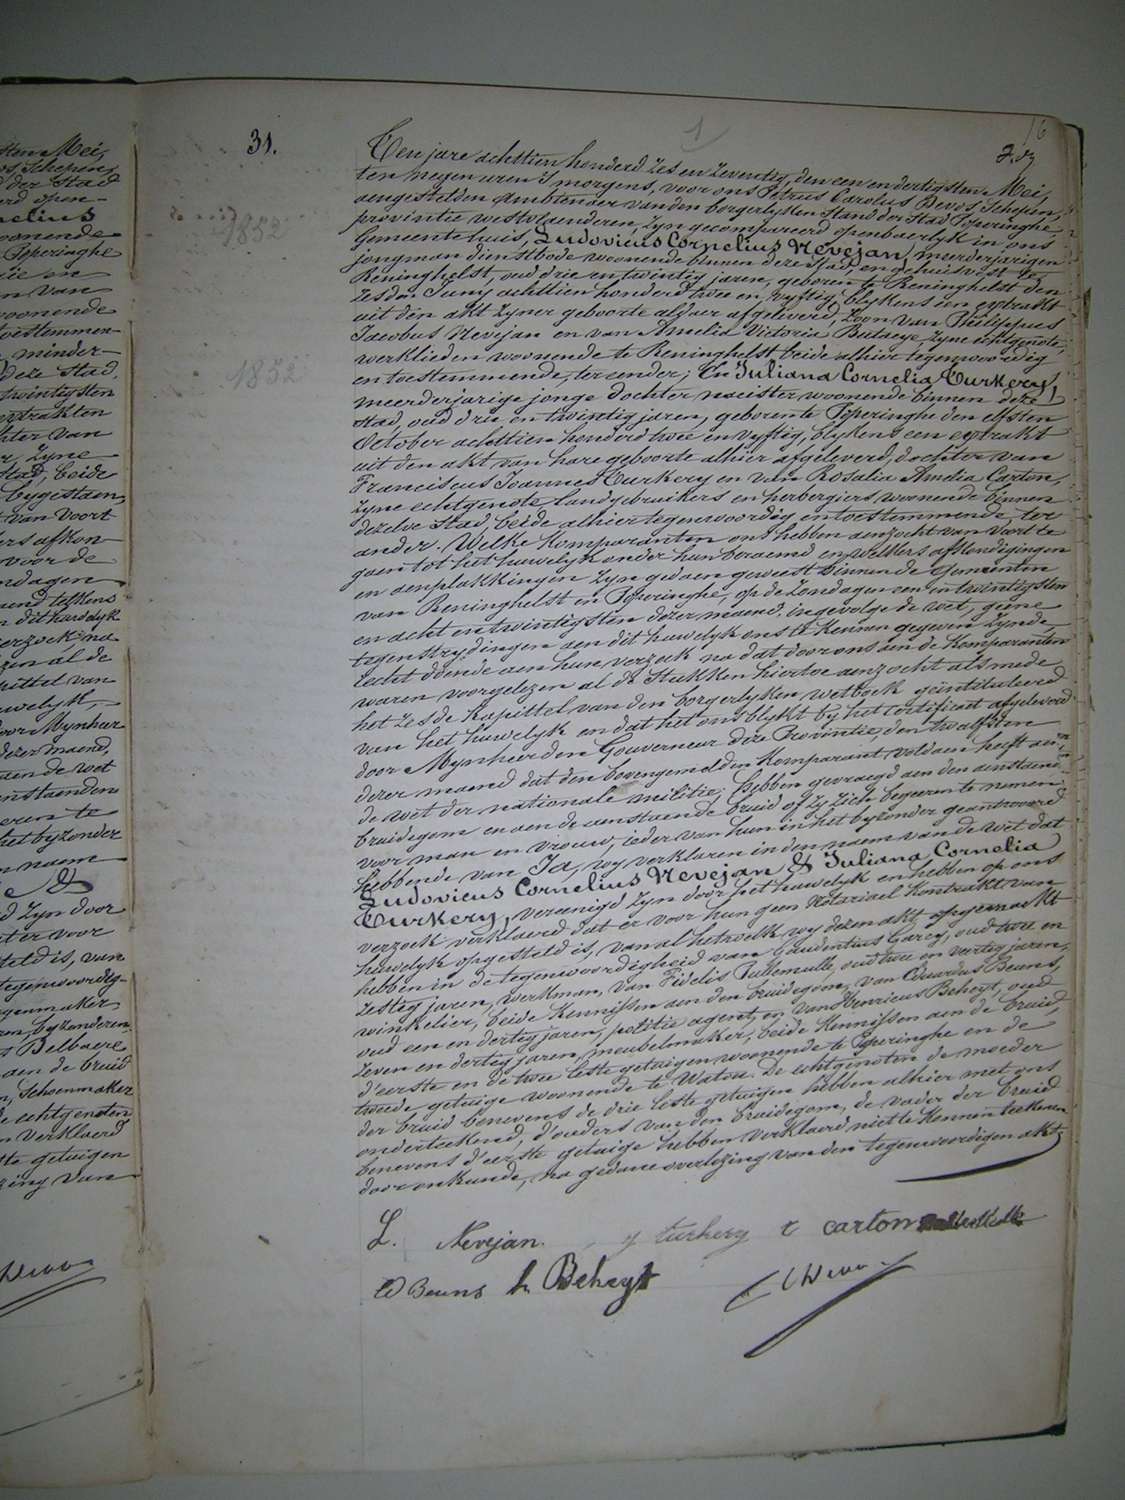 sten Mei,
os, Schepen,
d der Stad
erd open-
nelius
oonende
Poperinghe
rie en
n van
woonende
toestemmen-
minder-
Deze Stad,
twintigsten
extrakten
hter van
r, zyne
Stad, beide
bygestaen,
t van voort
ers afkon-
voor de
ndagen
aend telkens
n dit huwelyk
verzoek na
zen al de
pittel van
uwelyk,
door Mynheer
dezer maend,
aen de wet
enstaenden
eren te
het byzonder
n naem
e &
d zyn door
ater voor
steld is, van
tegenwoordig-
genmaker
ren, byzonderen
s Belbaere
aen de bruid
n, Schoenmaker
de echtgenoten
n verklaerd
te getuigen
zing van
CDevos
16
1
31.
1852
1852
Ten jare achttien honderd zes en zeventig, den een en dertigsten Mei,
ten negen uren 's morgens, voor ons Petrus Carolus Devos, Schepen,
aengestelden Ambtenaer van den borgerlyken Stand der Stad Poperinghe,
provintie westvlaenderen, zyn gecompareerd openbaerlyk in ons
Gemeentehuis, Ludovicus Cornelius Nevejan, meerderjarigen
jongman dienstbode woonende binnen deze stad, en gehuisvest te
Reninghelst, oud drie en twintig jaren, geboren te Reninghelst den
zesden Juny achttien honderd twee en vyftig, blykens een extrakt
uit den akt zyner geboorte aldaer afgeleverd, zoon van Philippus
Jacobus Nevejan en van Amelia Victoria zyne echtgenote,
werklieden woonende te Reninghelst beide alhier tegenwoordig
en toestemmende, ter eender; En Juliana Cornelia Turkery,
meerderjarige jonge dochter naeister woonende binnen deze
stad, oud drie en twintig jaren, geboren te Poperinghe den elfsten
October achttien honderd twee en vyftig, blykens een extrakt
uit den akt van hare geboorte alhier afgeleverd, dochter van
Franciscus Joannes Turkery en van Rosalia Amelia Carton,
zyne echtgenote landgebruikers en herbergiers, woonende binnen
dezelve Stad, beide alhier tegenwoordig en toestemmende, ter
ander. Welke Komparanten ons hebben aenzocht van voort te
gaen tot het huwelyk onder hun beraemd en welkers afkondigingen
en aenplakkingen zyn gedaen geweest binnen de Gemeenten
van Reninghelst en Poperinghe, op de Zondagen een en twintigsten
en acht en twintigsten dezer maend, ingevolge de wet, geene
tegenstrydingen aen dit huwelyk ons te kennen gegeven zynde,
recht doende aen hun verzoek na dat door ons aen de Komparanten
waren voorgelezen al de Stukken hiertoe aenzocht alsmede
het zesde kapittel van den borgerlyken wetboek geïntituleerd
van het huwelyk en dat het ons blykt by het certificaet afgeleverd
door Mynheer den Gouverneur dezer Provintie, den twaelfsten
dezer maend dat den bovengemelden Komparant voldaen heeft aen
de wet der nationale militie, hebben gevraegd aen den aenstaenden
bruidegom en aen de aenstaende bruid of zy zich begeeren te nemen
voor man en vrouw, ieder van hun in het byzonder geantwoord
hebbende van Ja, wy verklaren in den naem van de wet dat
Ludovicus Cornelius Nevejan & Juliana Cornelia
Turkery, vereenigd zyn door het huwelyk en hebben op ons
verzoek verklaerd dat er voor hun geen Notariael Kontrakt van
huwelyk opgesteld is, van al hetwelk wy dezen akt opgemaekt
hebben in de tegenwoordigheid van Gaudentius Garey, oud twee en
zestig jaren, werkman, van Fidelis oud twee en veertig jaren,
winkelier, beide kennissen aen den bruidegom, van Eduardus Beuns,
oud een en dertig jaren, politie agent, en van Henricus Beheyt, oud
zeven en dertig jaren, meubelmaker, beide kennissen aen de bruid,
d'eerste en de twee leste getuigen woonende te Poperinghe en de
tweede getuige woonende te Watou. De echtgenoten de moeder
der bruid benevens de drie leste getuigen hebben alhier met ons
onderteekend, d'ouders van den bruidegom, de vader der bruid
benevens d'eerste getuige hebben verklaerd niet te kennen teekenen
door onkunde, na gedane overlezing van den tegenwoordigen akt.
L. Nevejan j turkery r carton
ED Beuns h Beheyt CDevos